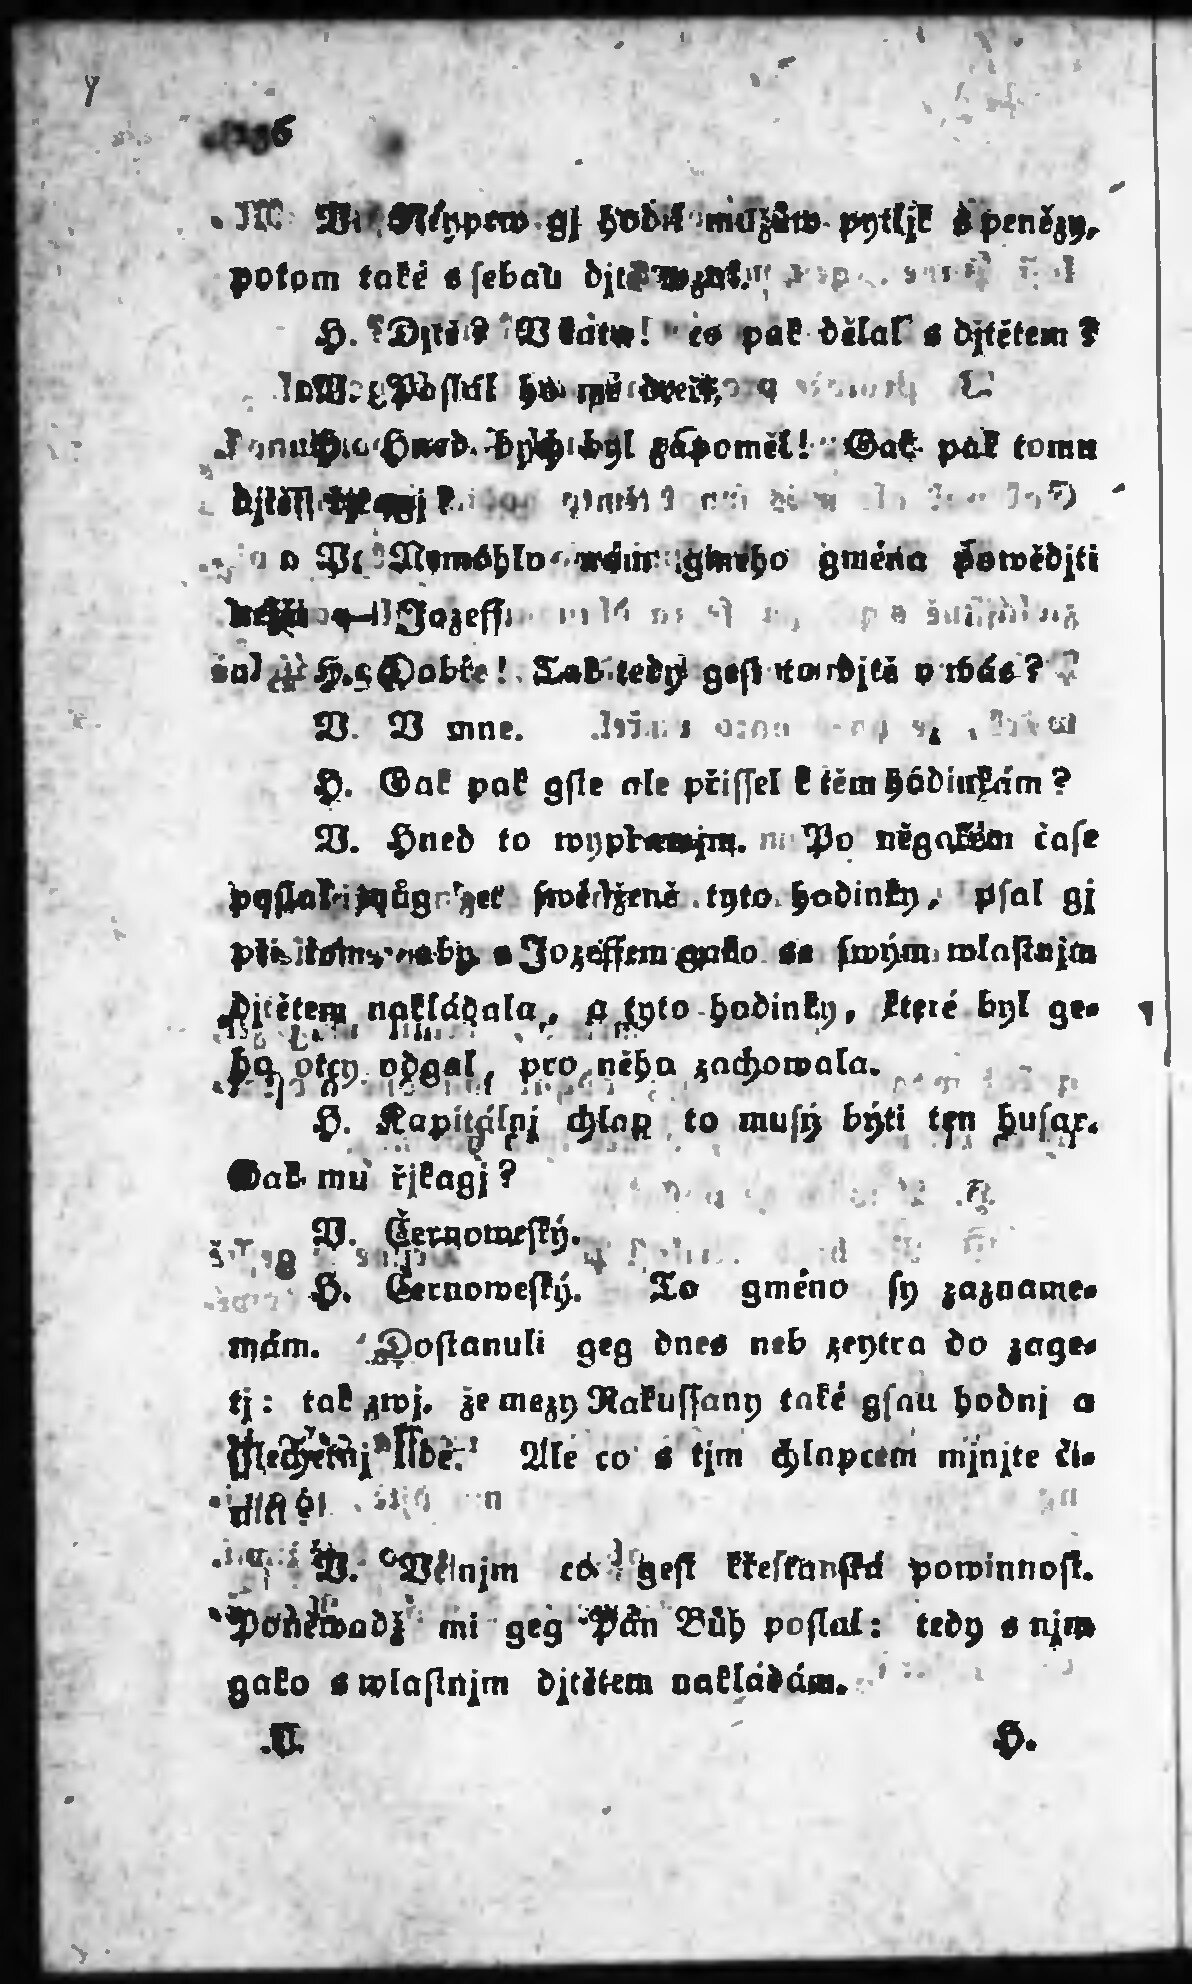 V. Neyprw gj hodil mužůw pytljk s penězy,
potom také s sebau djtě wzal.
H. Djtě? V kata! co pak dělal s djtětem?
V. Poslal ho mé
H. Hned bych byl zapoměl! Gak pak tomu
djtěti řjkagj?
V. Nemohlo nám giného gména powěditi
nežli — Jozeff
H. Dobře! Tak tedy gest to djtě v wás?
V. V mne.
H. Gak pak gste ale přissel k těm hodinkám?
V. Hned to wyprawjm. Po někakém čase
poslal můg zeť tyto hodinky, psal gj
při tom, aby s Jozeffem gako se swým wlastnjm
djtětem nakládala, a tyto hodinky, které byl ge-
ho otcy odgal, pro něho zachowala.
H. Kapitálnj chlap to musý býti ten husar.
Gak mu řjkagj?
V. Černoweský.
H. Černoweský. To gméno sy zazname-
mám. Dostanuli geg dnes neb zeytra do zage-
tj: tak zwj, že mezy Rakussany také gsau hodnj a
sslechetnj lidé. Ale co s tjm chlapcem mjnjte či-
niti?
V. Včinjm co gest křesťanská powinnost.
Poněwadž mi geg Pán Bůh poslal: tedy s njm
gako s wlastnjm djtětem nakládám.
V. H.